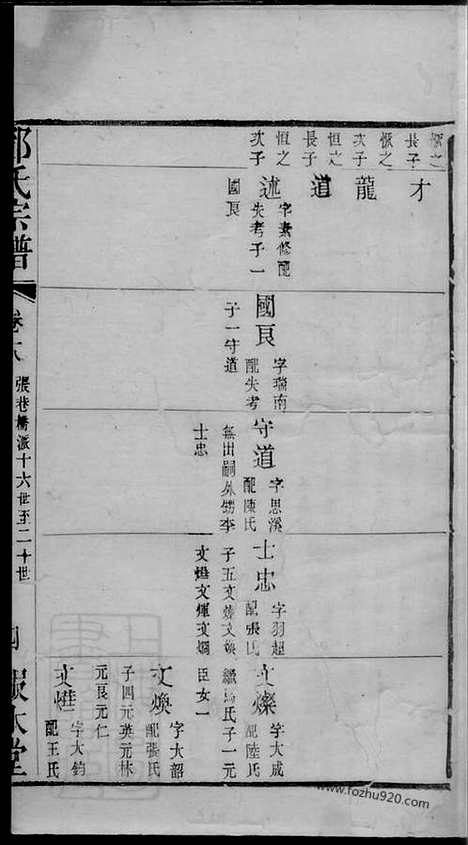 懷之
長子
才
懷之
次子
龍
恒之
長子
道
恒之
次子
述
字素修配
失考子一
國良
國良
字瑞南
配失考
子一守道
守道
字思溪
配陳氏
無出嗣外甥李
士忠
士忠
字羽超
配張氏
子五文燦文煥
文燈文煇文烱
女一
文燦
字大成
配陸氏
繼馬氏子一元
臣
文煥
字大韶
配張氏
子四元英元林
元良元仁
文燈
字大鈞
配王氏
邵氏宗譜
卷十八
張巷橋派十六世至二十世
四
報本堂
www.fozhu920.com